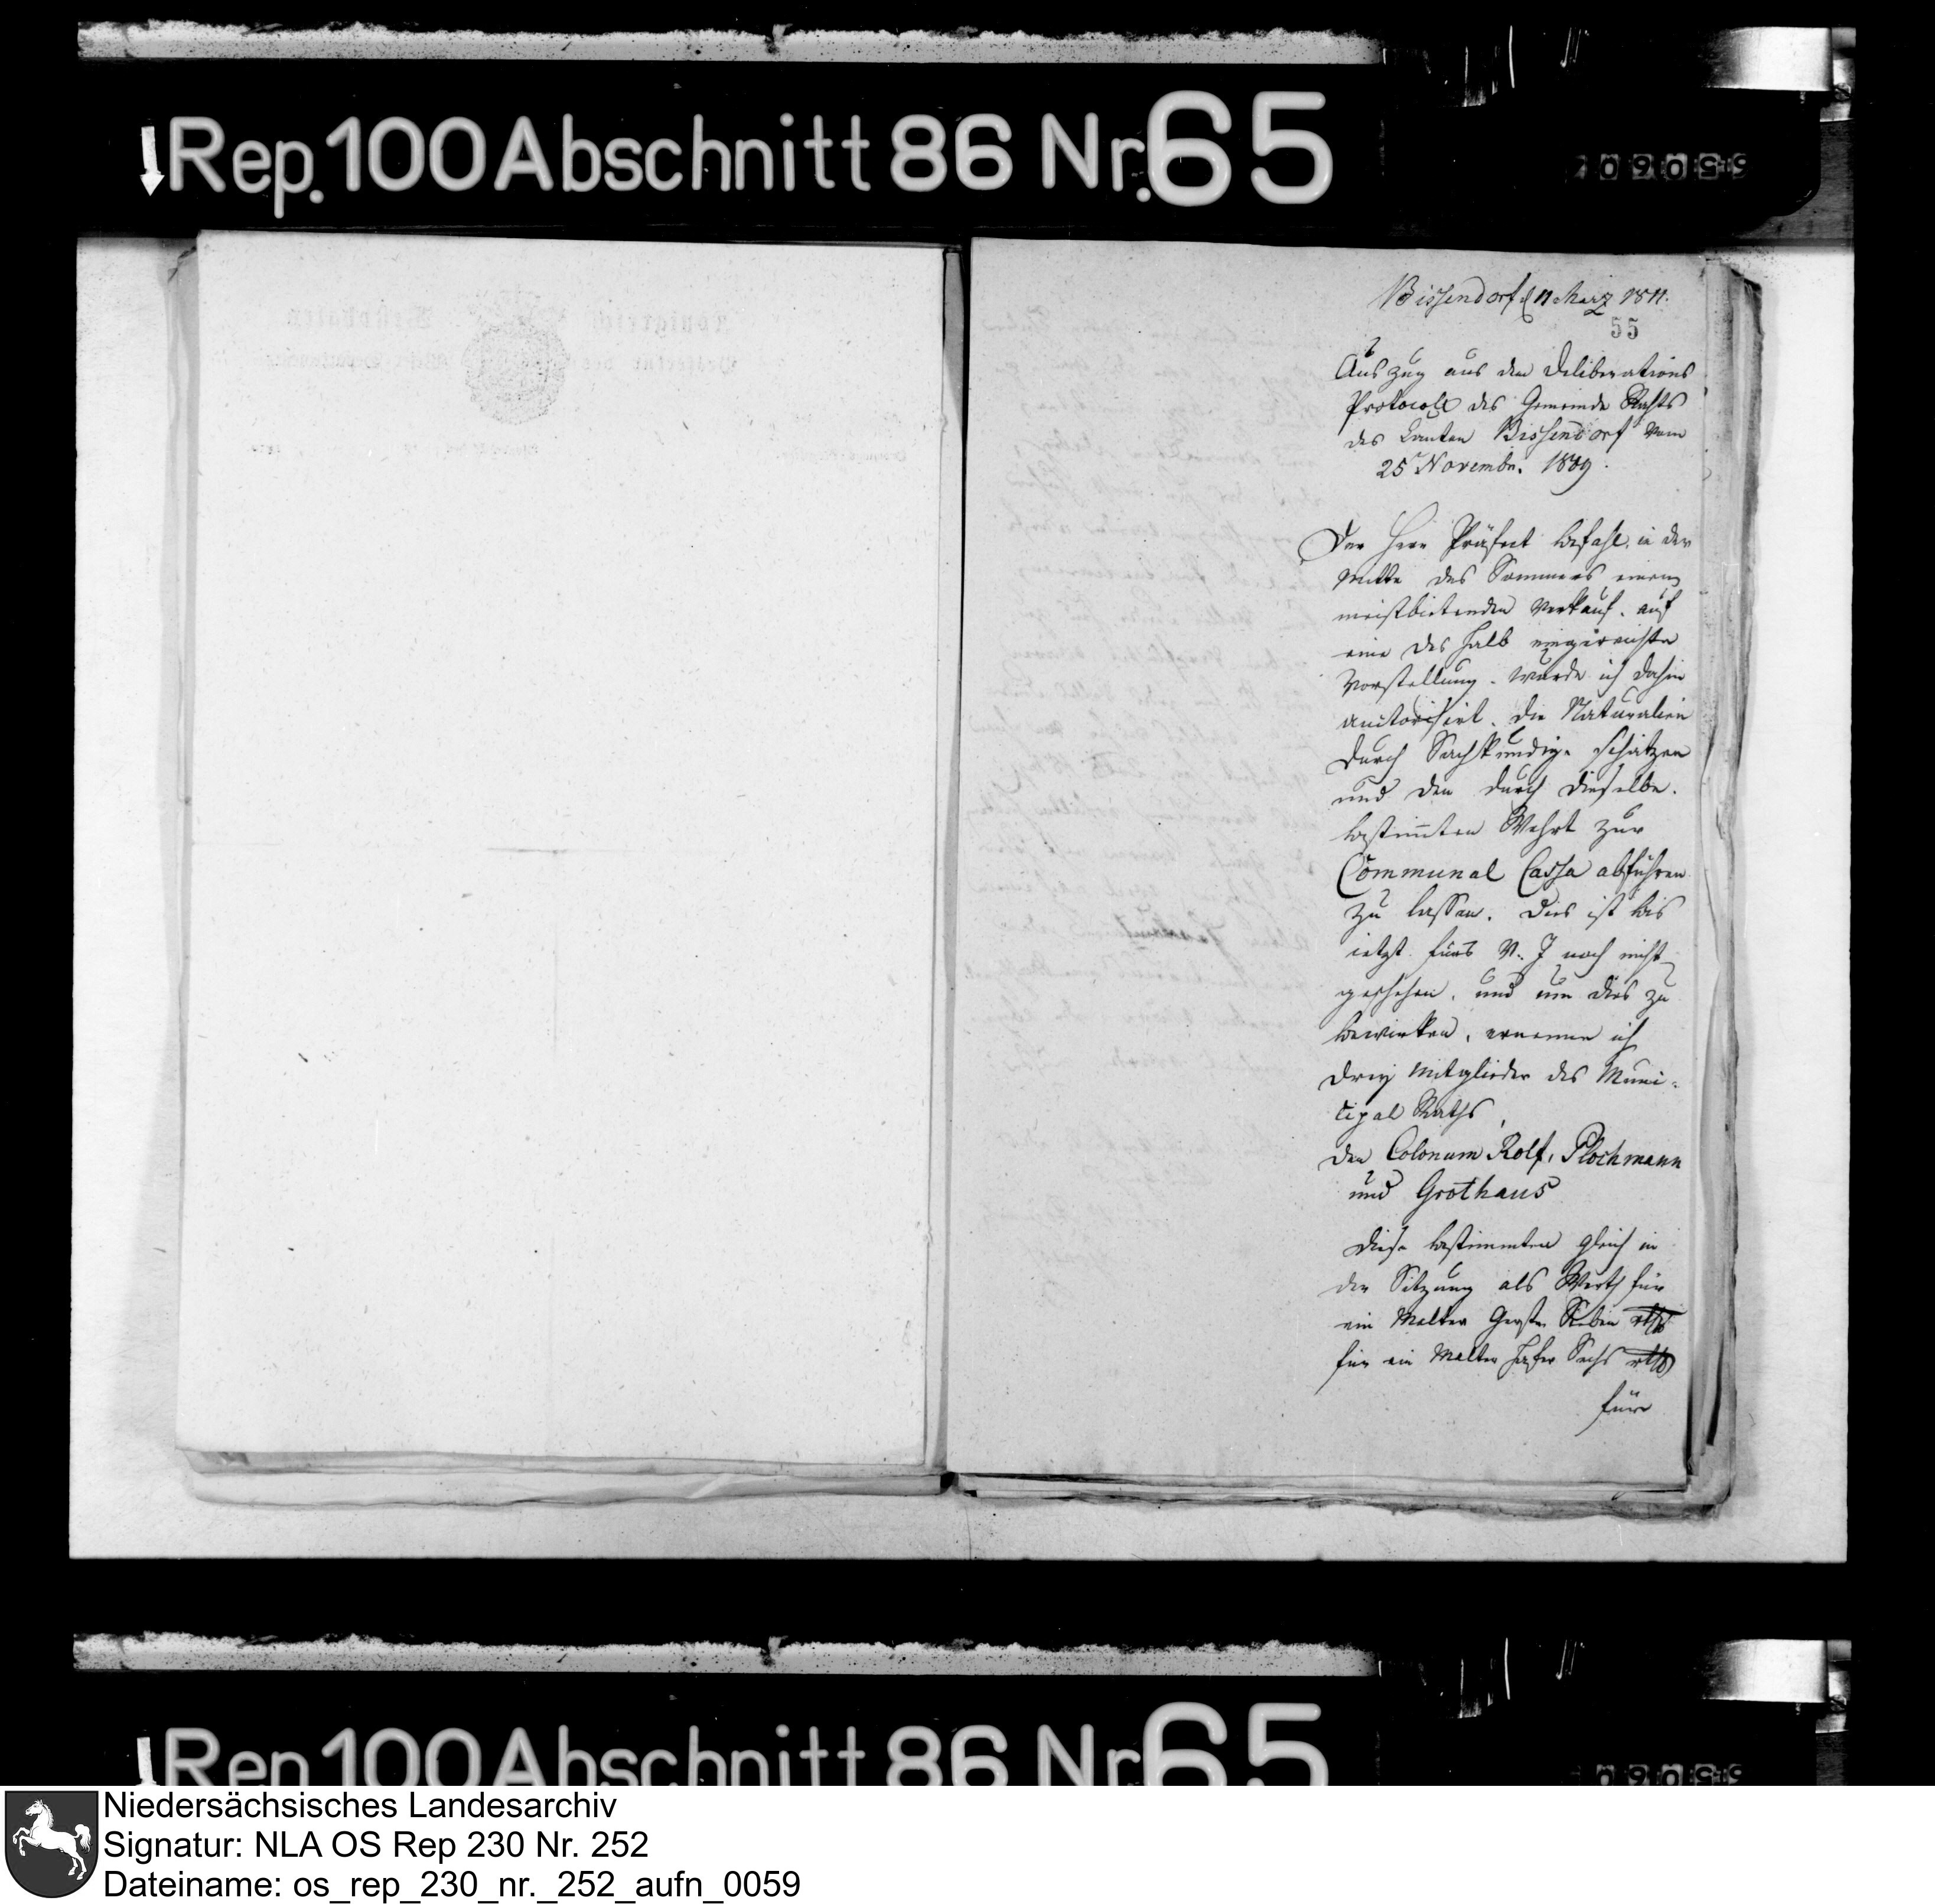 Rep. 100 Abschnitt 86 Nr. 65
Bissendorf d 11 Marz 1811.
55
Auszug aus dem Deliberations
Protocoll des Gemeinde Raths
des Canton Bissendorf vom
25 Novembr. 1809.
Der Herr Präfect befahl, in der
Mitte des Sommers einem
meistbietenden Verkauf. auf
eine des halb eingereichte
Vorstellung. wurde ich dahin
autorisirt. die Naturalien
durch Sachkundige schätzen
und den durch dieselbe.
bestimten Wehrt zur
Communal Cassa abführen
zu lassen. Dies ist bis
ietzt fürs v. J noch nicht
geschehen, und um dies zu
bewirken, ernenne ich
drey Mitglieder des Muni-
cipal Raths,
den Colonum Rolf, Plochmann
und Grothaus
Diese bestimmten gleich in
der Sitzung als Werth für
ein Malter Gerste Sieben rthlr
für ein Malter Hafer Sechs rthlr
für
Rep 100 Abschnitt 86 Nr 65
Niedersächsisches Landesarchiv
Signatur: NLA OS Rep 230 Nr. 252
Dateiname: os_rep_230_nr._252_aufn_0059